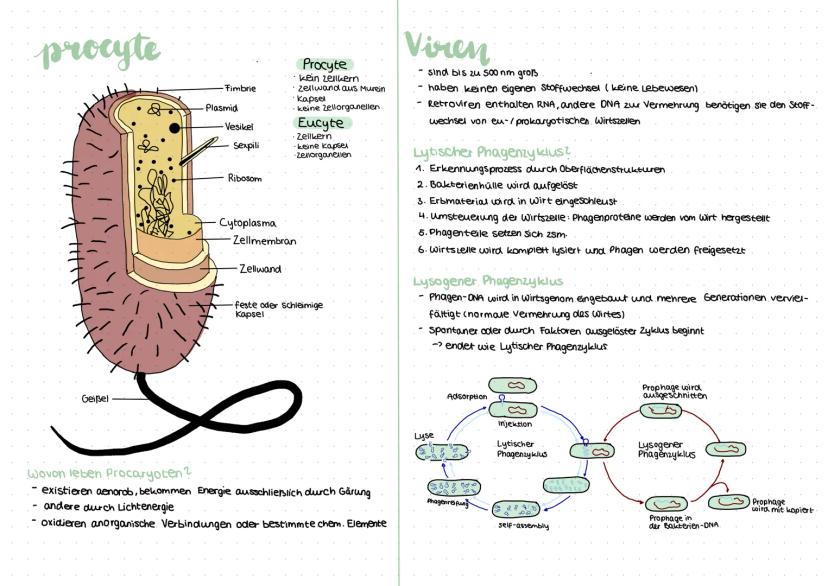 procyte
Fimbrie
Plasmid
Vesikel
Sexpili
Ribosom
Cytoplasma
Zellmembran
Zellwand
feste oder schleimige
Kapsel
Geißel
Procyte
· kein Zellkern
· Zellwand aus Murein
· Kapsel
· keine Zellorganellen
Eucyte
· Zellkern
· keine Kapsel
· Zellorganellen
Wovon leben Procaryoten?
- existieren aenorob, bekommen Energie ausschließlich durch Gärung
- andere durch Lichtenergie
- oxidieren anorganische Verbindungen oder bestimmte chem. Elemente
Viren
- sind bis zu 500 nm groß
- haben keinen eigenen Stoffwechsel (keine Lebewesen)
- Retroviren enthalten RNA, andere DNA zur Vermehrung benötigen sie den Stoff-
wechsel von eu-/prokaryotischen Wirtszellen
Lytischer Phagenzyklus?
1. Erkennungsprozess durch Oberflächenstrukturen
2. Bakterienhülle wird aufgelöst
3. Erbmaterial wird in Wirt eingeschleust
4. Umsteuerung der Wirtszelle: Phagenproteine werden vom Wirt hergestellt
5. Phagenteile setzen sich zsm.
6. Wirtszelle wird komplett lysiert und Phagen werden freigesetzt
Lysogener Phagenzyklus
- Phagen-DNA wird in Wirtsgenom eingebaut und mehrere Generationen verviel-
fältigt (normale Vermehrung des Wirtes)
- Spontaner oder durch Faktoren ausgelöster Zyklus beginnt
-> endet wie Lytischer Phagenzyklus
Adsorption
Injektion
Lyse
Lytischer
Phagenzyklus
Phagenreifung
self-assembly
Prophage wird
ausgeschnitten
Lysogener
Phagenzyklus
Prophage in
der Bakterien-DNA
Prophage
wird mit kopiert